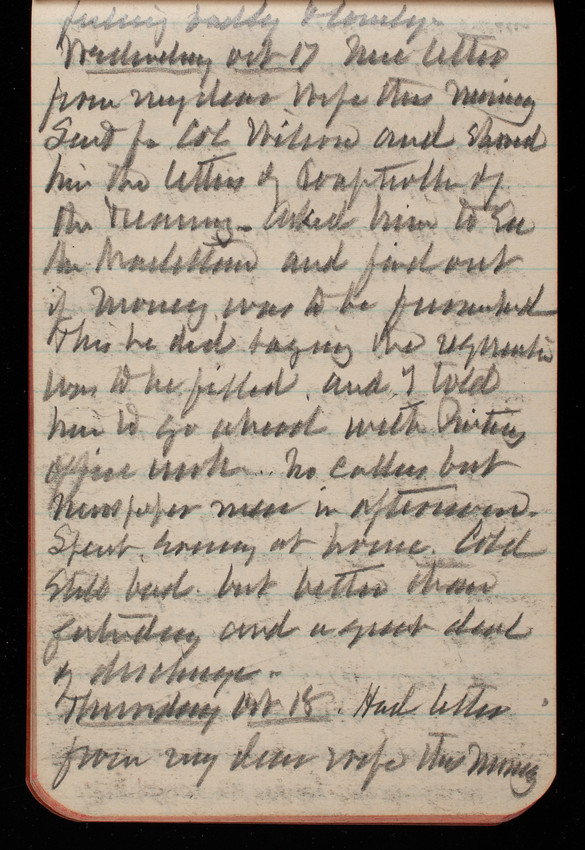 feeling badly & lonely.
Wednesday Oct 17 Nice letter
from my dear wife this morning
Sent for Col Wilson and showed
him the letters of Comptroller of
the Treasury - Asked him to see
Mr and find out
if money was to be furnished
this he did saying the requisition
was to be filled, and I told
him to go ahead with Printing
office work.. No callers but
Newspaper men in afternoon.
Spent evening at home. Cold
still bad. but better than
yesterday and a great deal
of discharge -
Thursday Oct 18. Had letter
from my dear wife this morning